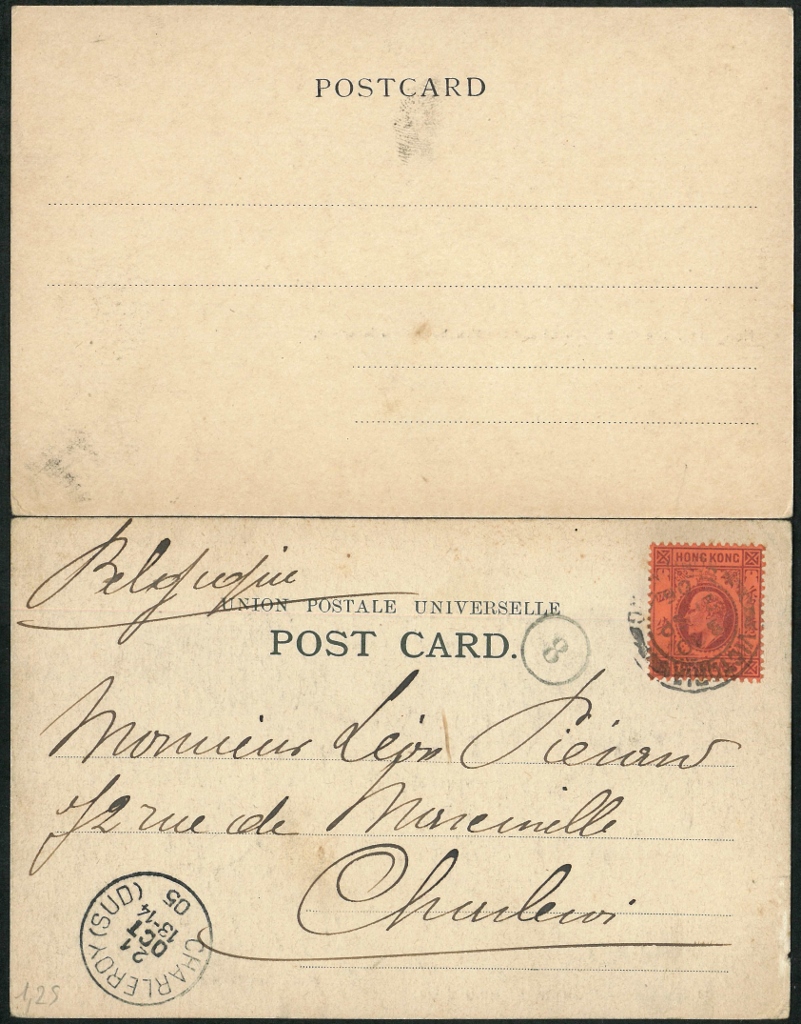 POSTCARD
Belgique
UNION POSTALE UNIVERSELLE
POST CARD.
8
HONG KONG
Monsieur Léon Piérard
72 rue de Marcinelle
Charleroi
CHARLEROY (SUD)
21
OCT
13-14
05
1,25